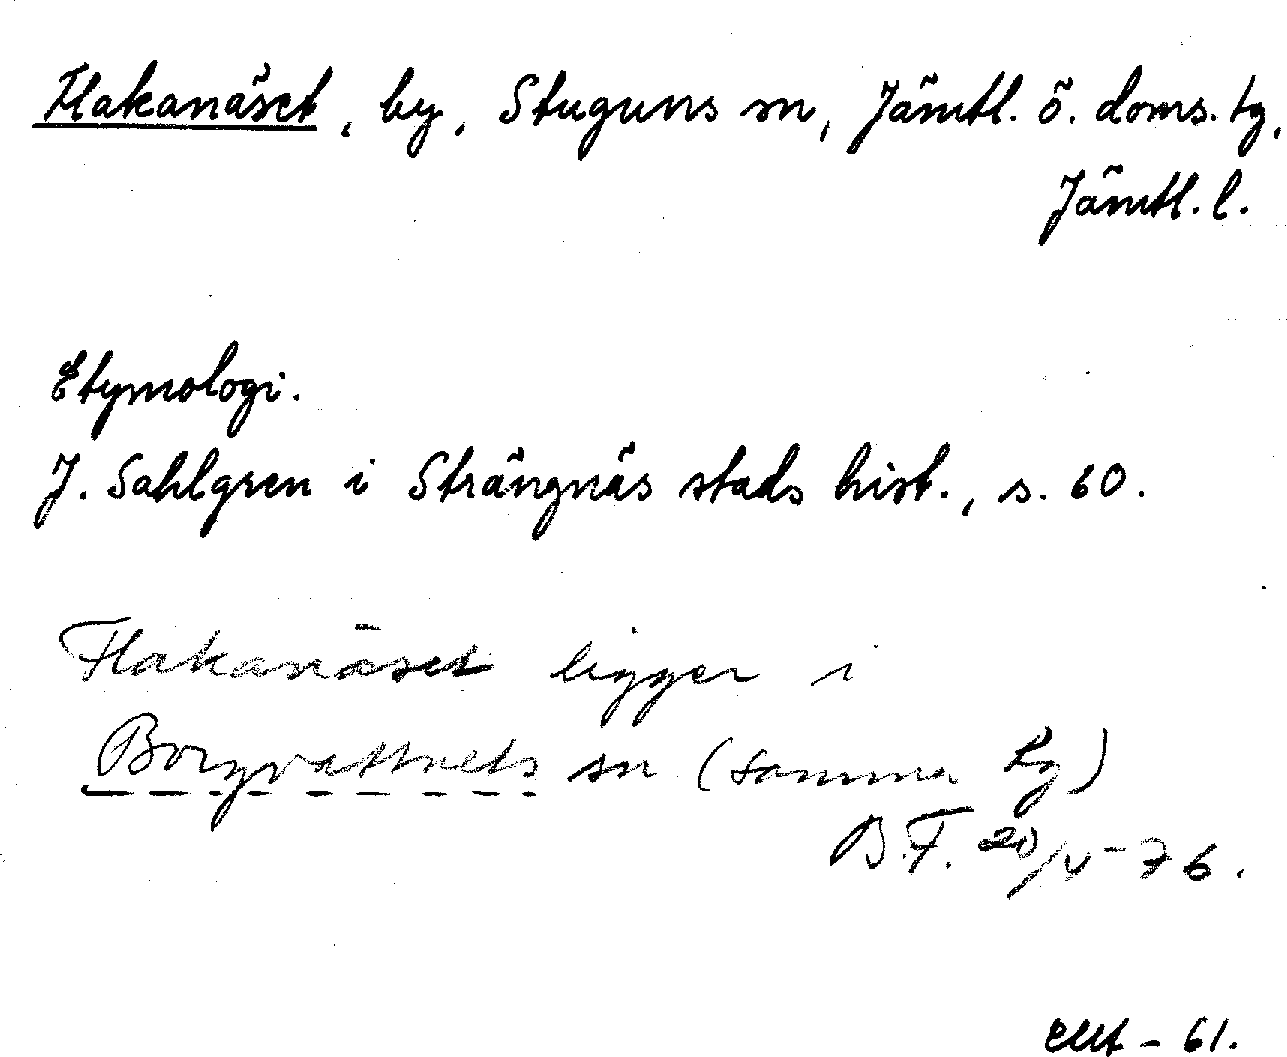 Flakanäset, by, Stuguns sn, Jämtl. ö. doms. tg,
Jämtl. l.
Etymologi.
J. Sahlgren i Strängnäs stads hist., s. 60.
Flakanäset ligger i
Borgvattnets sn (samma tg)
B.F. 20/V-76.
-61.